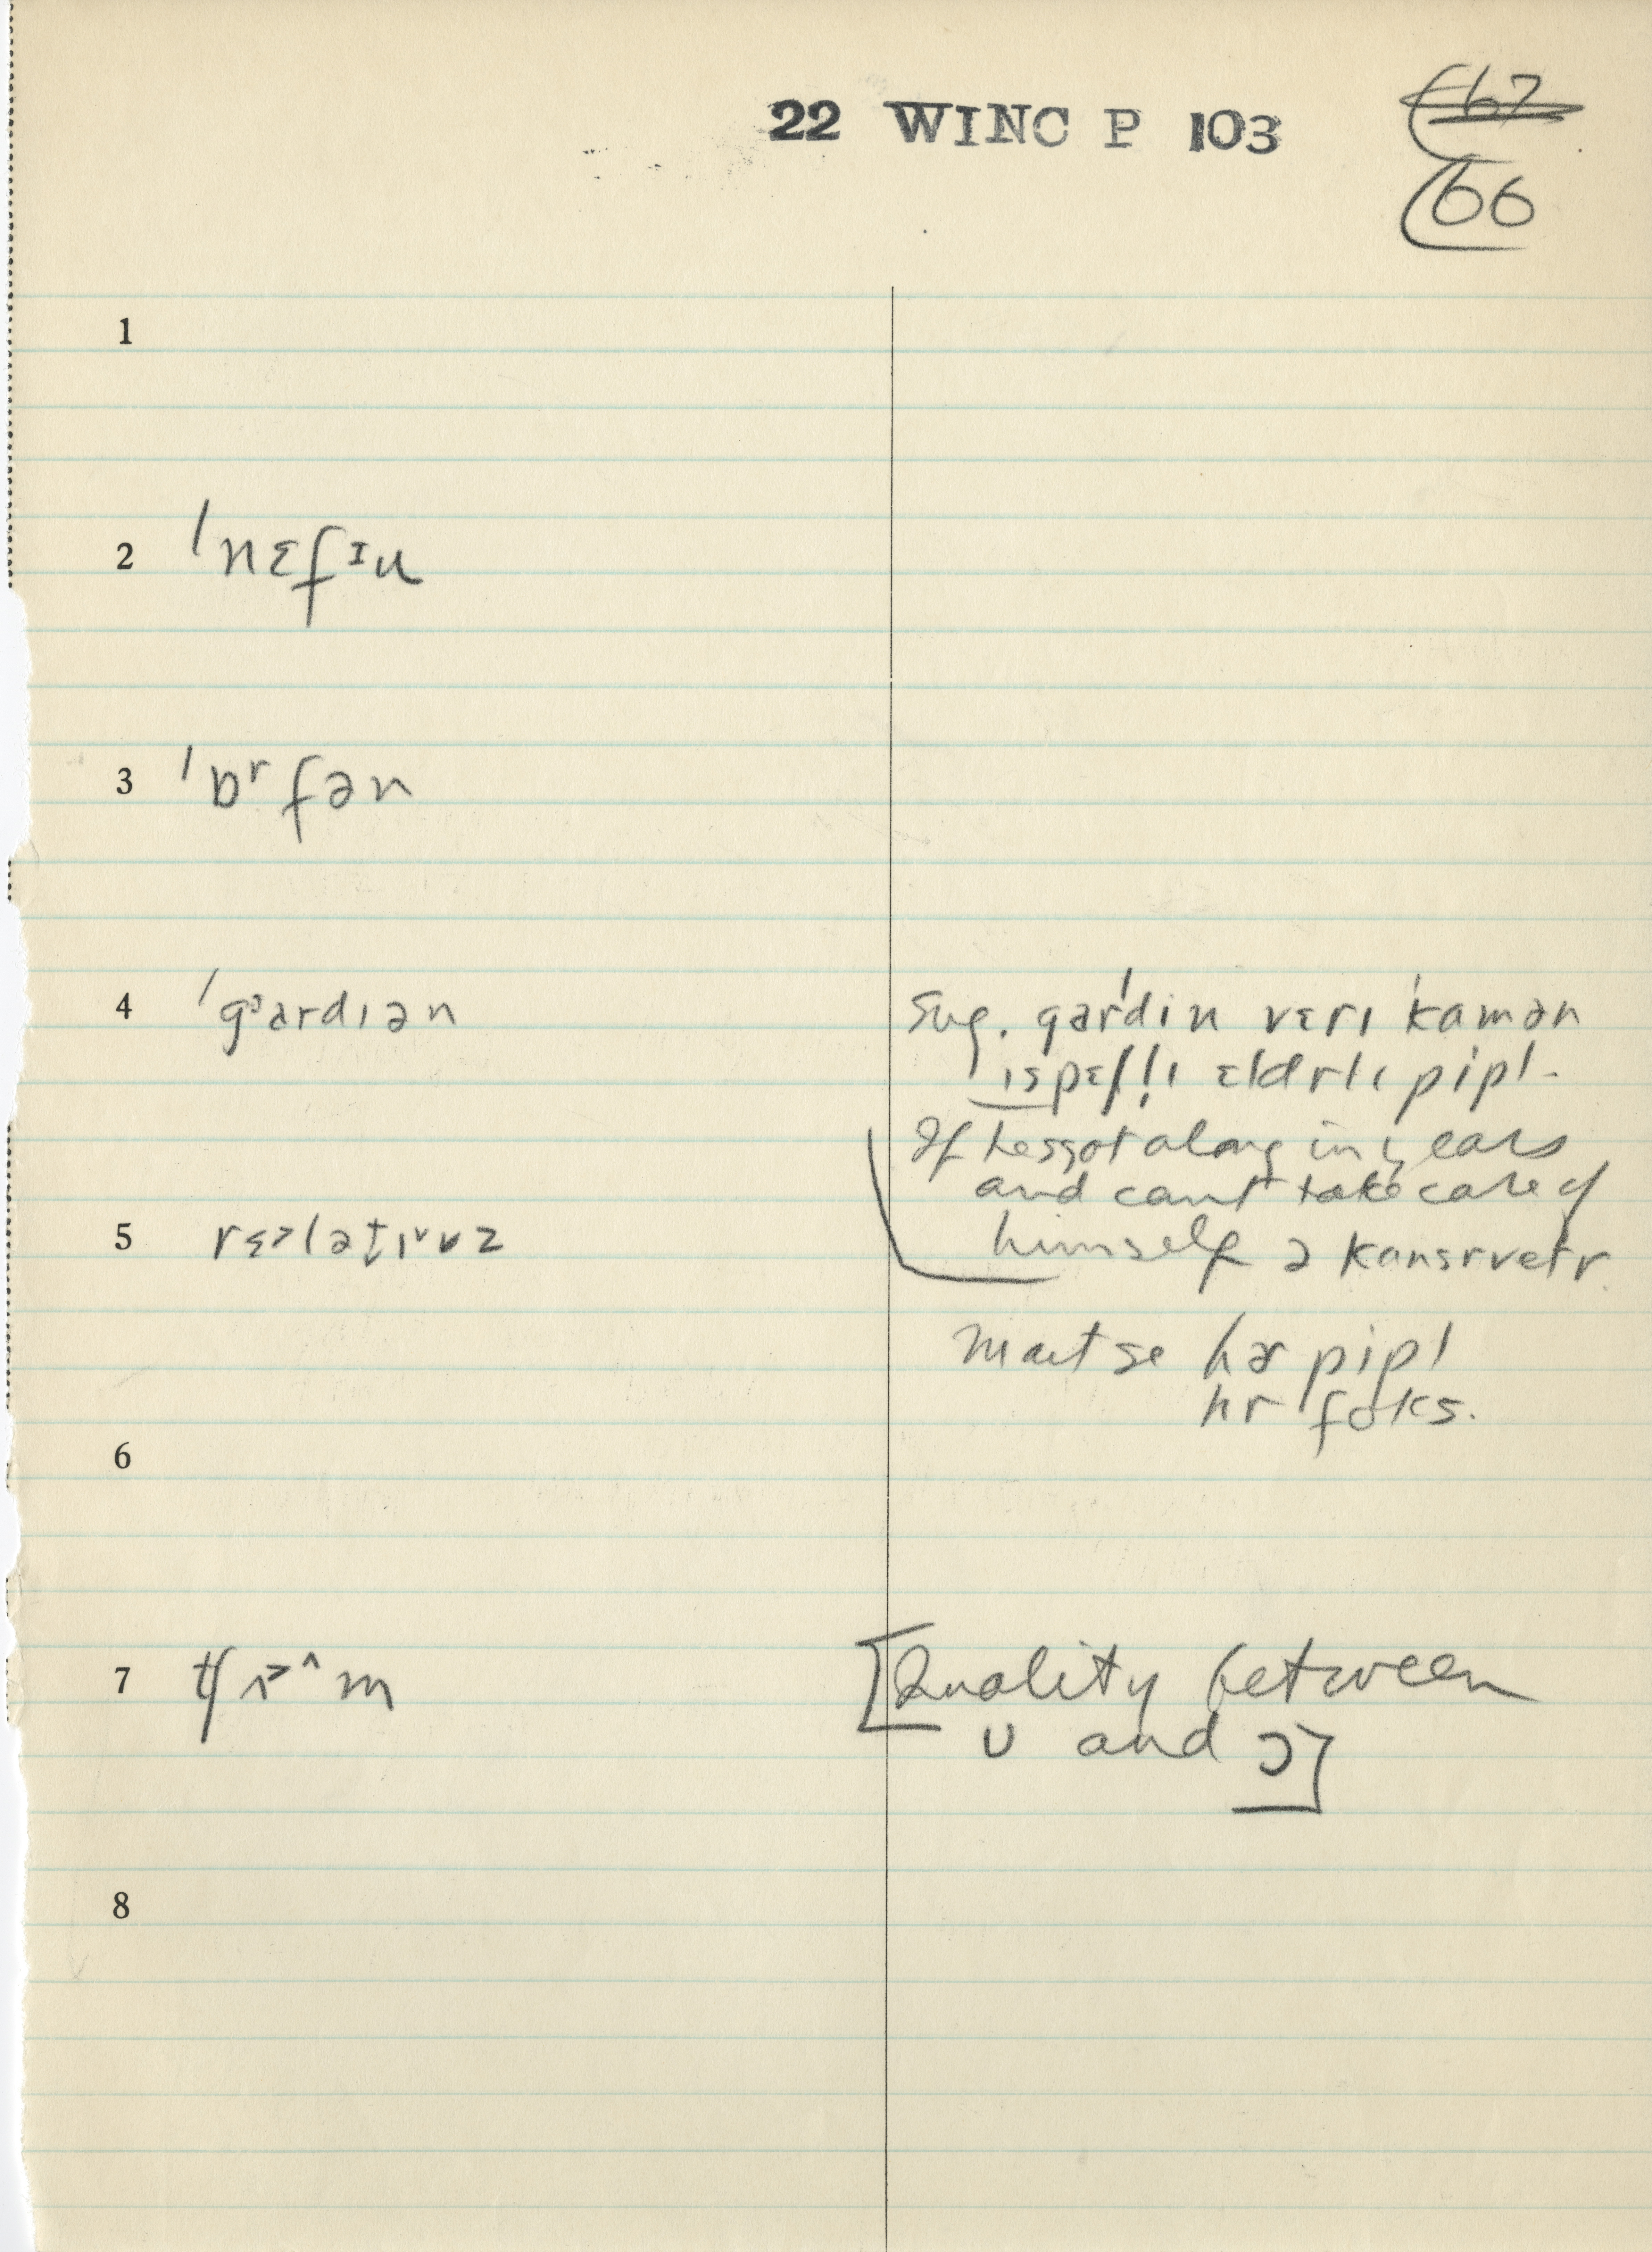 22 WINC P 103
67
66
1
2 ˈnɛfɪu
3 ˈɒʳfən
4 ˈgᵊardɪən
Sug. garˈdin vɛrɪ ˈkamən
ɪspɛʃl̩ɪ ɛldrlɪ pipl-
If hes got along in years
and cant take care of
himself ə kansrvetr.
5 rɛ˃lət̬ɪ˅vz
maɪt se hɚ pipl
hr foks.
6
7 tʃʌ˃˄m
[Quality between
ʊ and ɔ]
8